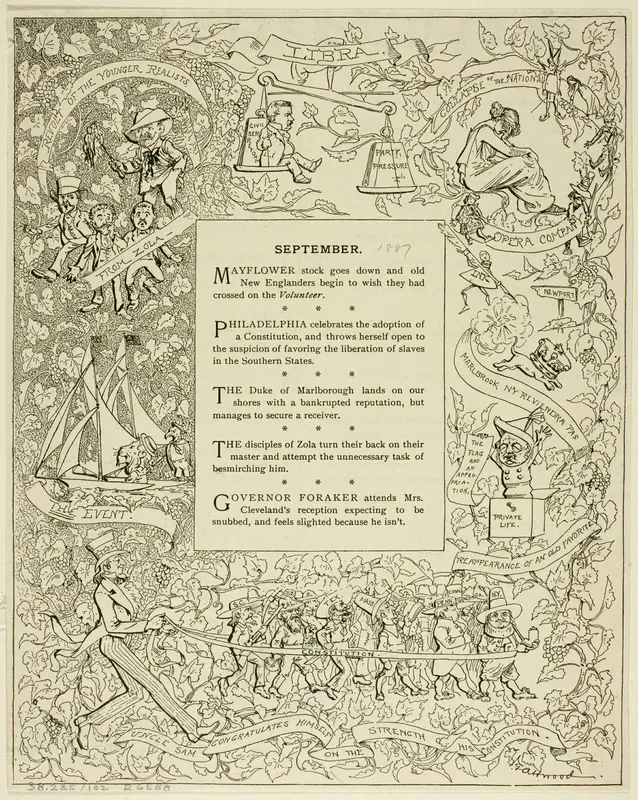 LIBRA
REVOLT OF THE YOUNGER REALISTS
FROM ZOLA
CIVIL
SER
PARTY
PRESSURE
COLLAPSE OF THE NATIONAL
OPERA COMPANY
NEWPORT
MARLBROOK N'Y REVIENDRA PAS
SEPTEMBER. 1887
MAYFLOWER stock goes down and old
New Englanders begin to wish they had
crossed on the Volunteer.
* * *
PHILADELPHIA celebrates the adoption of
a Constitution, and throws herself open to
the suspicion of favoring the liberation of slaves
in the Southern States.
* * *
THE Duke of Marlborough lands on our
shores with a bankrupted reputation, but
manages to secure a receiver.
* * *
THE disciples of Zola turn their back on their
master and attempt the unnecessary task of
besmirching him.
* * *
GOVERNOR FORAKER attends Mrs.
Cleveland's reception expecting to be
snubbed, and feels slighted because he isn't.
THE EVENT.
THE
FLAG
AND
AN
APPRO-
PRIA-
TION.
PRIVATE
LIFE.
REAPPEARANCE OF AN OLD FAVORITE
N.Y.
CONSTITUTION
UNCLE SAM CONGRATULATES HIMSELF
ON THE
STRENGTH OF HIS CONSTITUTION.
38.235/102 R6588